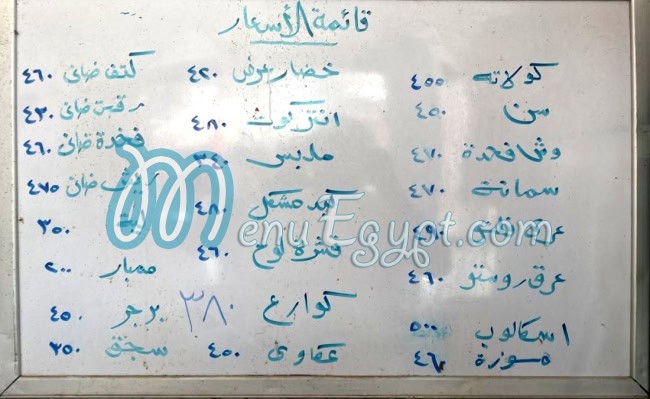 قائمة الأسعار
كولاته ٤٥٥
سن ٤٥٠
وش فخدة ٤٧٠
سمانة ٤٧٠
عرق فلتو ٤٩٠
عرق روستو ٤٦٠
اسكالوب ٥٠٠
موزة ٤٦٠
خضار عرض ٤٢٠
انتركوت ٤٨٠
ملبس ٣٤٠
كبد مشكل ٤٨٠
قشرة لوح ٤٦٠
كوارع ٣٨٠
عكاوى ٤٥٠
كتف ضانى ٤٦٠
رقبة ضانى ٤٣٠
فخدة ضانى ٤٦٠
ريش ضانى ٤٧٥
لية ٣٥٠
ممبار ٢٠٠
برجر ٤٥٠
سجق ٣٥٠
MenuEgypt.com